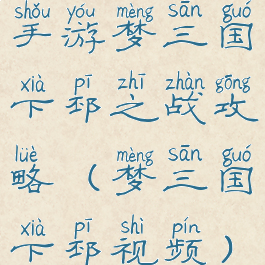 shǒu yóu mèng sān guó
手游梦三国
xià pī zhī zhàn gōng
下邳之战攻
lüè mèng sān guó
略(梦三国
xià pī shì pín
下邳视频)